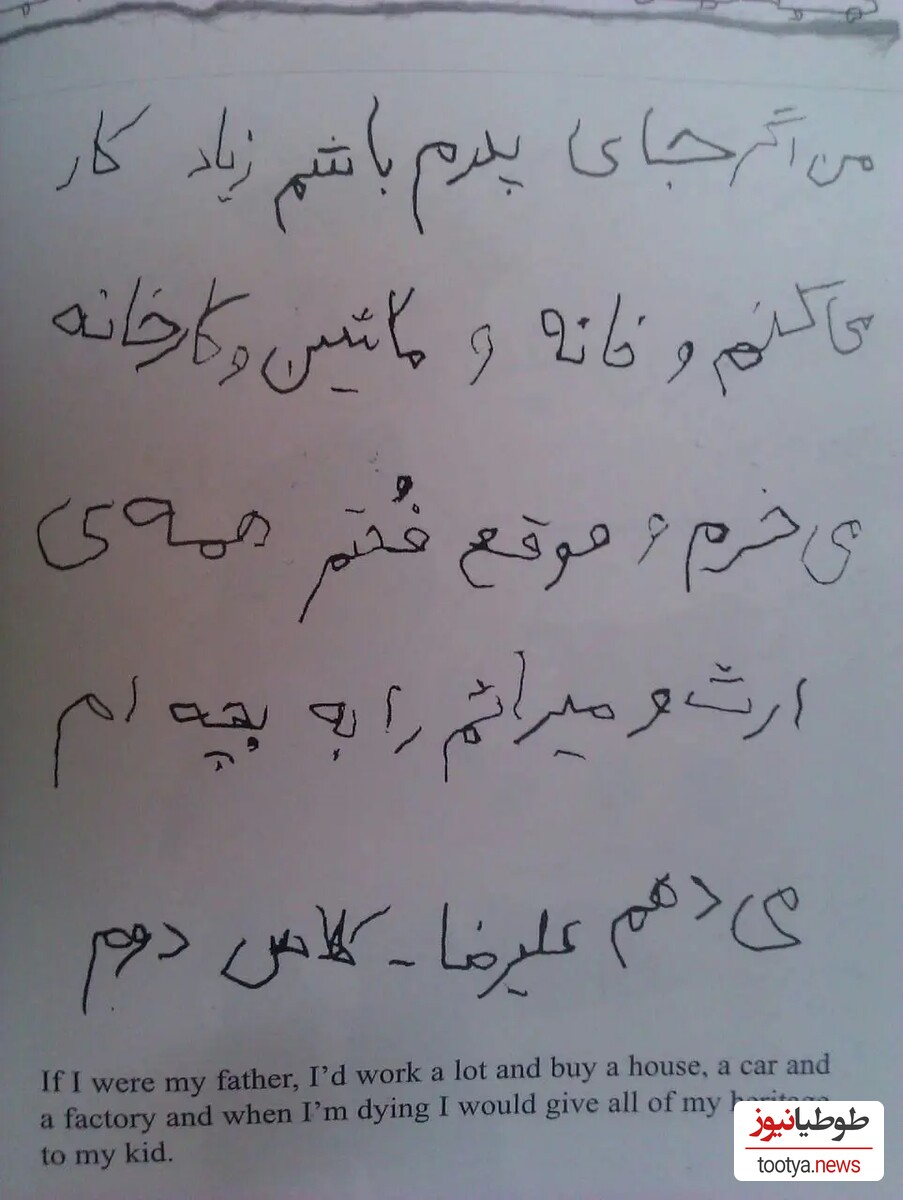 من اگر جای پدرم باشم زیاد کار
می کنم و خانه و ماشین و کارخانه
می خرم و موقع فُتم همه ی
ارث و میراثم را به بچه ام
می دهم علیرضا - کلاس دوم
If I were my father, I'd work a lot and buy a house, a car and
a factory and when I'm dying I would give all of my heritage
to my kid.
طوطیانیوز
tootya.news